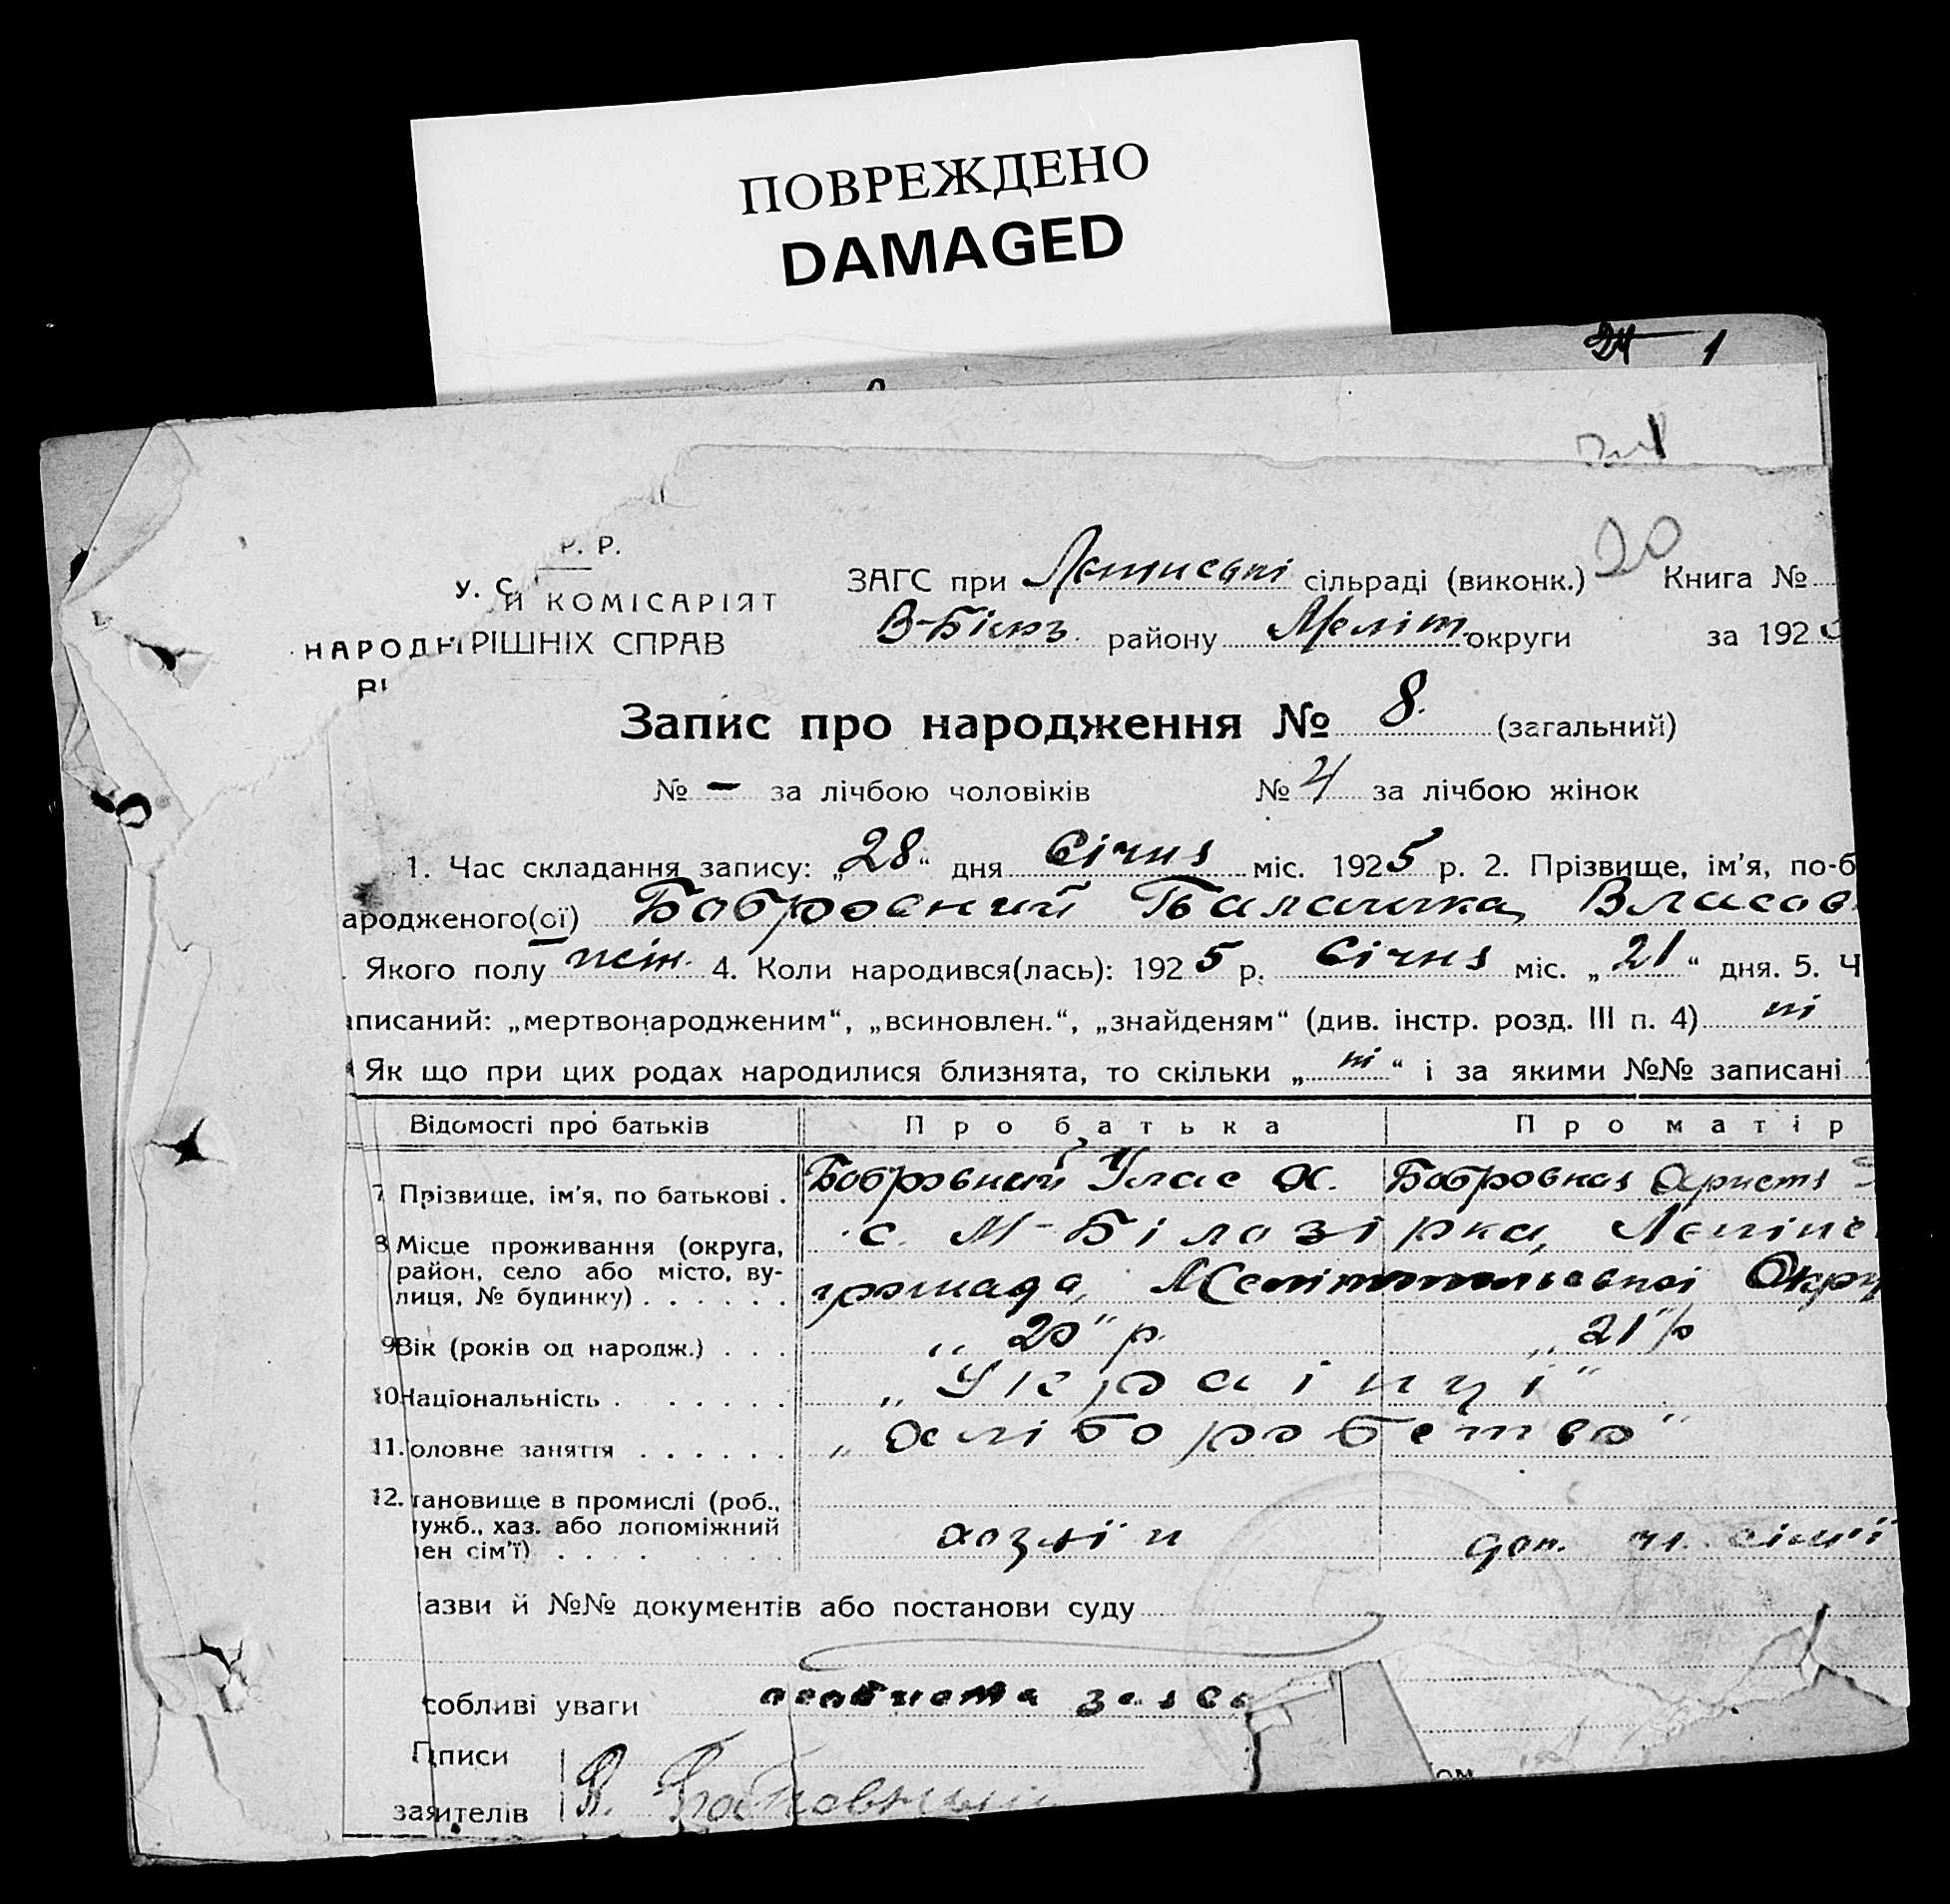 ПОВРЕЖДЕНО
DAMAGED
24 1
Р. Р.
У. С.
Й КОМІСАРІЯТ
НАРОДН
РІШНІХ СПРАВ
ЗАГС при сільраді (виконк.) 20 Книга №
В-Білоз. району Меліт. округи за 192
Запис про народження № 8. (загальний)
№ - за лічбою чоловіків № 4 за лічбою жінок
1. Час складання запису: „28“ дня Січня міс. 1925 р. 2. Прізвище, ім’я, по-б
ародженого(ої) Власов
. Якого полу жін. 4. Коли народився(лась): 1925 р. Січня міс. „21“ дня. 5. Ч
аписаний: „мертвонародженим“, „всиновлен.“, „знайденям“ (див. інстр. розд. III п. 4) ні
Як що при цих родах народилися близнята, то скільки „ні“ і за якими №№ записані
Відомості про батьків Про батька Про матір
7 Прізвище, ім’я, по батькові . Бобровний Улас Х. Бобровная Христя
8 Місце проживання (округа, с. М-Білозірка, Ленінс
район, село або місто, ву-
лиця, № будинку) . . . . . . громада, Мелітопольської Окру
9 Вік (років од народж.) . . . „20“ р. „21“ р
10 Національність . . . . . . . „Українці“
11. оловне заняття . . . . . . „Хліборобство“
12. тановище в промислі (роб.,
ужб., хаз. або допоміжний
ен сім’ї) . . . . хозяїн доп. чл. сім’ї
азви й №№ документів або постанови суду
собливі уваги особиста заява
Пiдписи
заявителів Бобровний